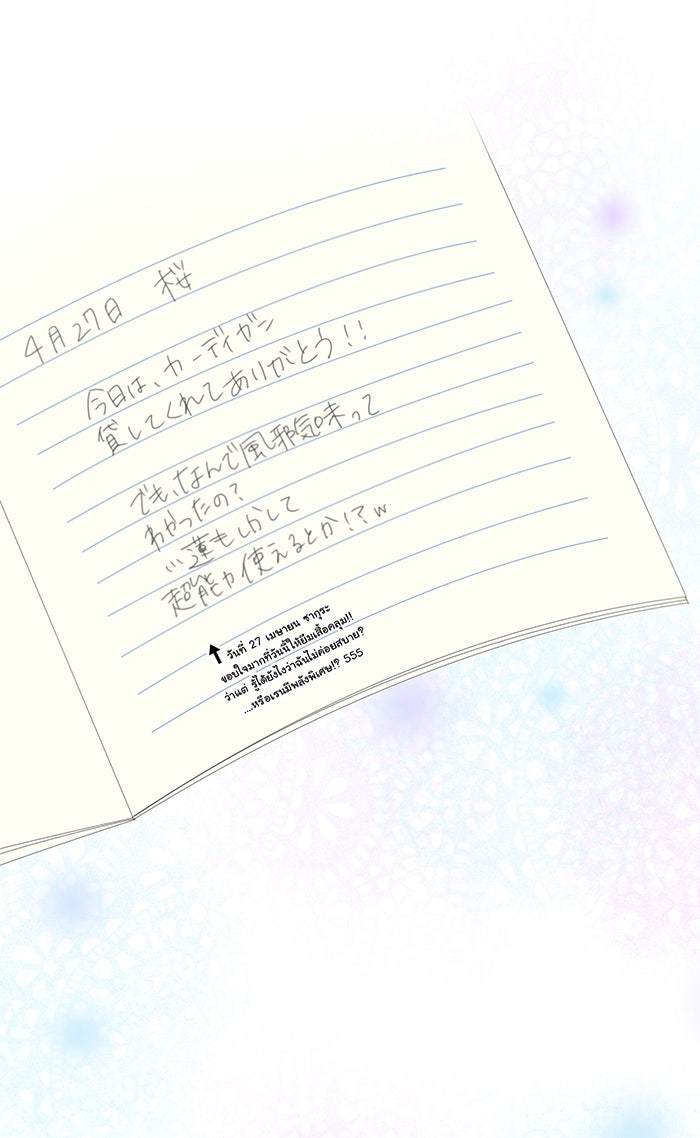 4月27日 桜
今日は、カーディガン
貸してくれてありがとう!!
でも、なんで風邪気味って
わかったの?
…蓮もしかして
超能力使えるとか!?w
วันที่ 27 เมษายน ซากุระ
ขอบใจมากที่วันนี้ให้ยืมเสื้อคลุม!!
ว่าแต่ รู้ได้ยังไงว่าฉันไม่ค่อยสบาย?
....หรือเรนมีพลังพิเศษ!? 555